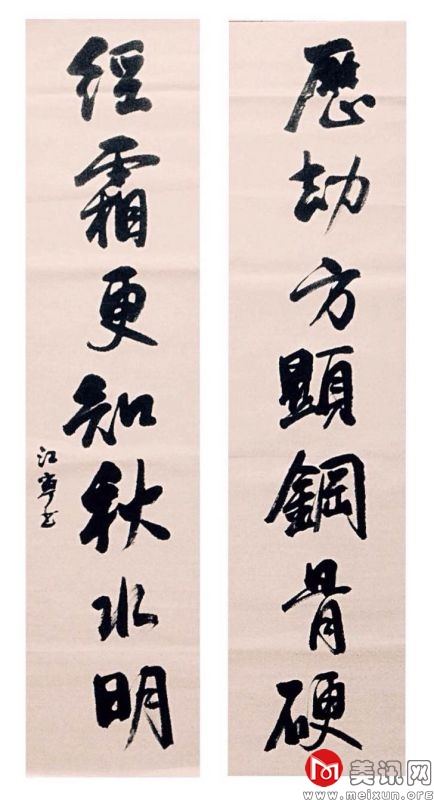 歷劫方顯鋼骨硬
經霜更知秋水明
江寧書
美讯网
www.meixun.org